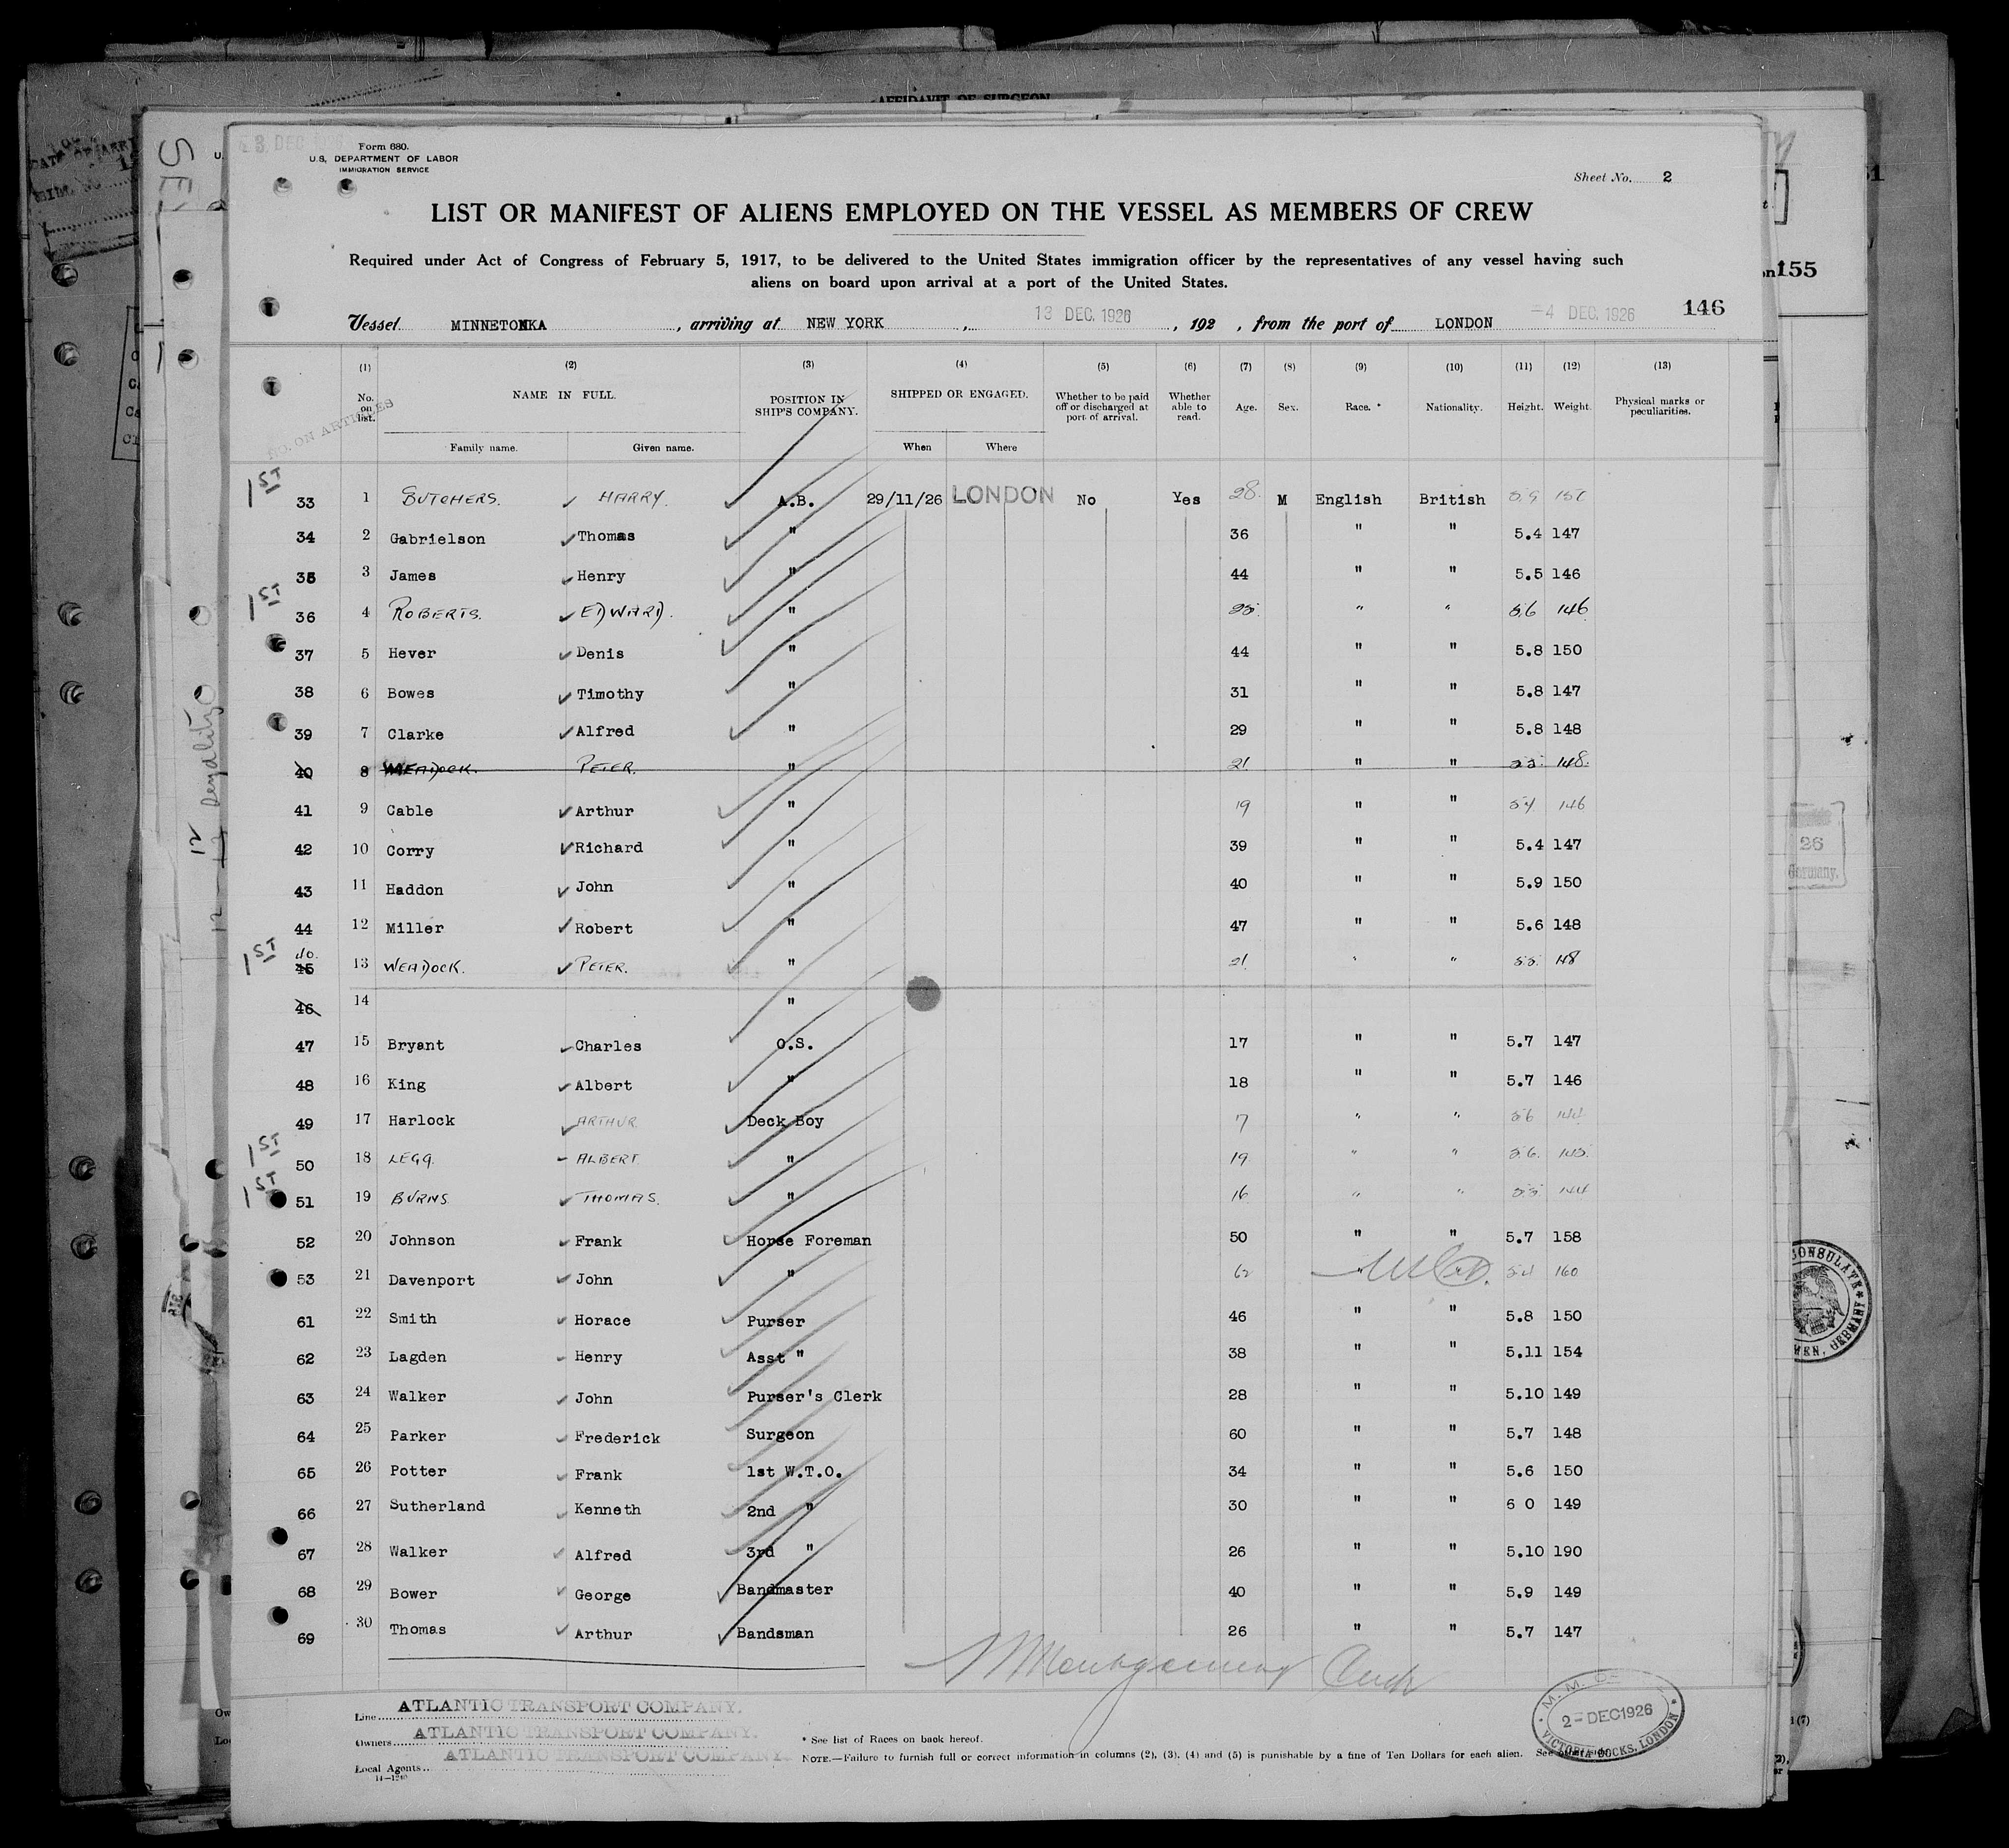 AFFIDAVIT OF SURGEON
13 DEC 1926
Form 680.
U.S. DEPARTMENT OF LABOR
IMMIGRATION SERVICE
Sheet No. 2
LIST OR MANIFEST OF ALIENS EMPLOYED ON THE VESSEL AS MEMBERS OF CREW
Required under Act of Congress of February 5, 1917, to be delivered to the United States immigration officer by the representatives of any vessel having such
aliens on board upon arrival at a port of the United States.
155
146
Vessel MINNETONKA, arriving at NEW YORK, 13 DEC. 1926, 192 , from the port of LONDON -4 DEC. 1926
(1) (2) (3) (4) (5) (6) (7) (8) (9) (10) (11) (12) (13)
NO. ON ARTICLES No. on list. NAME IN FULL. POSITION IN SHIP'S COMPANY. SHIPPED OR ENGAGED. Whether to be paid off or discharged at port of arrival. Whether able to read. Age. Sex. Race. * Nationality. Height. Weight. Physical marks or peculiarities.
Family name. Given name. When Where
1ST 33 1 BUTCHERS. HARRY. A.B. 29/11/26 LONDON No Yes 28 M English British 5.9
34 2 Gabrielson Thomas " 36 " " 5.4 147
35 3 James Henry " 44 " " 5.5 146
1ST 36 4 ROBERTS. EDWARD. " " " 5.6 146
37 5 Hever Denis " 44 " " 5.8 150
38 6 Bowes Timothy " 31 " " 5.8 147
39 7 Clarke Alfred " 29 " " 5.8 148
40 8 WEADOCK. PETER. " 21 " " 5.5 148
41 9 Cable Arthur " 19 " " 5.4 146
42 10 Corry Richard " 39 " " 5.4 147
43 11 Haddon John " 40 " " 5.9 150
44 12 Miller Robert " 47 " " 5.6 148
1ST 40. 45 13 WEADOCK. PETER. " 21 " " 5.5 148
46 14 "
47 15 Bryant Charles O.S. 17 " " 5.7 147
48 16 King Albert " 18 " " 5.7 146
49 17 Harlock ARTHUR Deck Boy " " 5.6 144
1ST 50 18 LEGG. ALBERT " 19 " " 5.6 145
1ST 51 19 BURNS THOMAS. " 16 " " 5.5 144
52 20 Johnson Frank Horse Foreman 50 " " 5.7 158
53 21 Davenport John " 62 " 5.4 160
61 22 Smith Horace Purser 46 " " 5.8 150
62 23 Lagden Henry Asst " 38 " " 5.11 154
63 24 Walker John Purser's Clerk 28 " " 5.10 149
64 25 Parker Frederick Surgeon 60 " " 5.7 148
65 26 Potter Frank 1st W.T.O. 34 " " 5.6 150
66 27 Sutherland Kenneth 2nd " 30 " " 6 0 149
67 28 Walker Alfred 3rd " 26 " " 5.10 190
68 29 Bower George Bandmaster 40 " " 5.9 149
69 30 Thomas Arthur Bandsman 26 " " 5.7 147
Line ATLANTIC TRANSPORT COMPANY.
Owners ATLANTIC TRANSPORT COMPANY.
Local Agents ATLANTIC TRANSPORT COMPANY.
14—1240
* See list of Races on back hereof.
NOTE.—Failure to furnish full or correct information in columns (2), (3), (4) and (5) is punishable by a fine of Ten Dollars for each alien.
2-DEC1926
VICTORIA DOCKS, LONDON
26
Germany.
CONSULATE
GERMANY